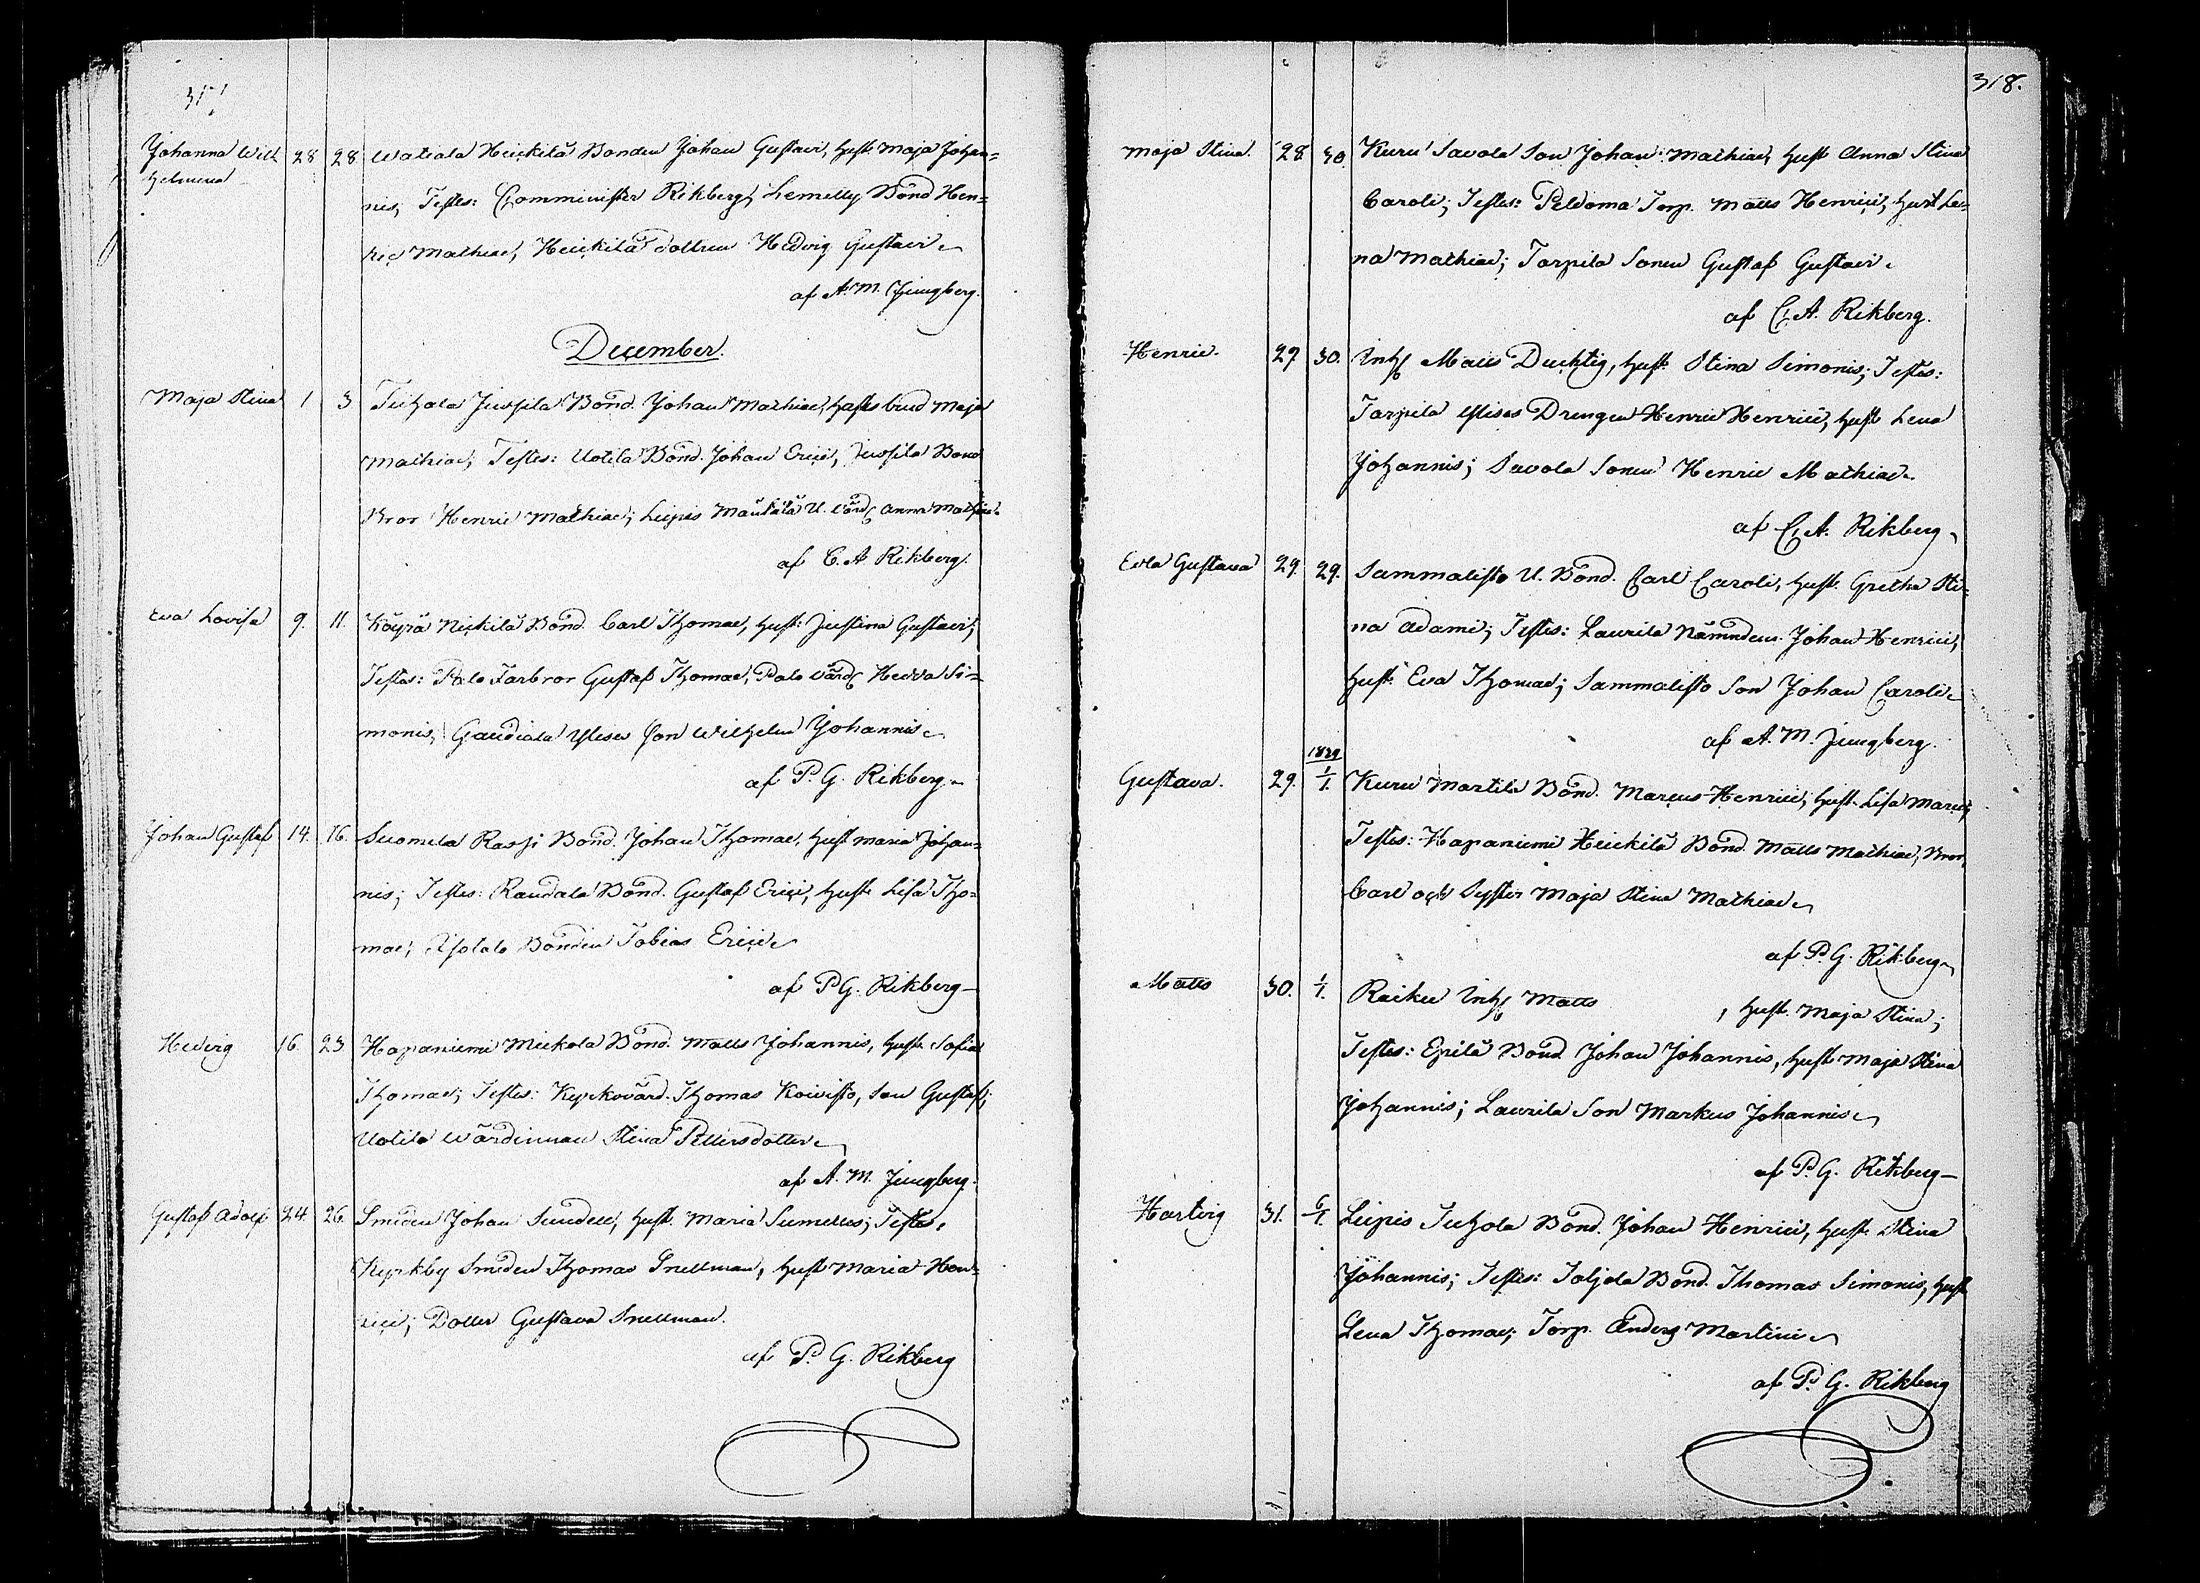 317
Johanna Wilhelmina 28 28 Watiala Heickilä Bonden Johan Gustavi, hust. Maja Johan=
nis, Testes: Comminister Rikberg, Lemetty Bond Hen=
ric Mathiae, Heickilä dottren Hedvig Gustavi
af A. M. Ljungberg.
December.
Maja Stina 1 3 Juspila Bond. Johan Mathiae, hustru Maja
Mathiae, Testes: Uotila Bond. Johan Erici, Juspila Bond
Bror Henric Mathiae; Liepis U. Anna
af C. A. Rikberg.
Eva Lovisa 9. 11. Köyrä Nickilä Bond. Carl Thomae, hust: Justina Gustavi;
Testes: Palo Farbror Gustaf Thomae, Palo värd. Hedda Si=
monis, Son Wilhelm Johannis
af P. G. Rikberg
Johan Gustaf 14. 16. Suomela Rassi Bond. Johan Thomae, hust Maria Johan=
nis; Testes: Raudala Bond. Gustaf Erici, hust. Lisa Tho=
mae, Bonden Tobias Erici
af P G. Rikberg
Hedvig 16 23 Hapaniemi Mickola Bond. Matts Johannis, hust. Sofia
Thomae; Testes: Kyrkovärd. Thomas Koivisto, son Gustaf;
Uotila wärdinnan Stina Pettersdotter
af A. M. Ljungberg.
Gustaf Adolf 24. 26. Smeden Johan Sundell, hust. Maria; Testes,
Kyrkby Smeden Thomas Snellman, hust Maria Hen=
rici; Dotter Gustava Snellman.
af P. G. Rikberg
318.
Maja Stina. 28. 30. Kuru Savola Son Johan Mathiae, hust Anna Stina
Caroli; Testes: Peldoma Torp. Matts Henrici, hust Le=
na Mathiae; Tarpila Sonen Gustaf Gustavi
af C. A. Rikberg.
Henric. 29 30. Inh. Matts Duchtig, hust. Stina Simonis; Testes:
Tarpila Drengen Henric Henrici, hust Lena
Johannis; Savola Sonen Henric Mathiae
af C. A. Rikberg
Eva Gustava 29. 29. Sammalisto U. Bond. Carl Caroli, hust. Gretha Sti=
na Adami; Testes: Laurila Nämndem. Johan Henrici,
hust. Eva Thomae; Sammalisto Son Johan Caroli
af A. M. Ljungberg.
1829
Gustava. 29. 1/1. Kuru Martila Bond. Marcus Henrici, hust. Lisa Marci;
Testes: Hapaniemi Heickilä Bond. Matts Mathiae, Bror
Carl och Syster Maja Stina Mathiae
af P. G. Rikberg
Matts 30. 1/1. Raiku Inh. Matts , hust. Maja Stina;
Testes: Epilä Bond Johan Johannis, hust Maja Stina
Johannis; Laurila Son Markus Johannis
af P. G. Rikberg
Hartvig 31. 6/1. Liepis Juhola Bond. Johan Henrici, hust. Stina
Johannis; Testes: Toljola Bond. Thomas Simonis, hust
Lena Thomae; Torp. Anders Martini
af P. G. Rikberg